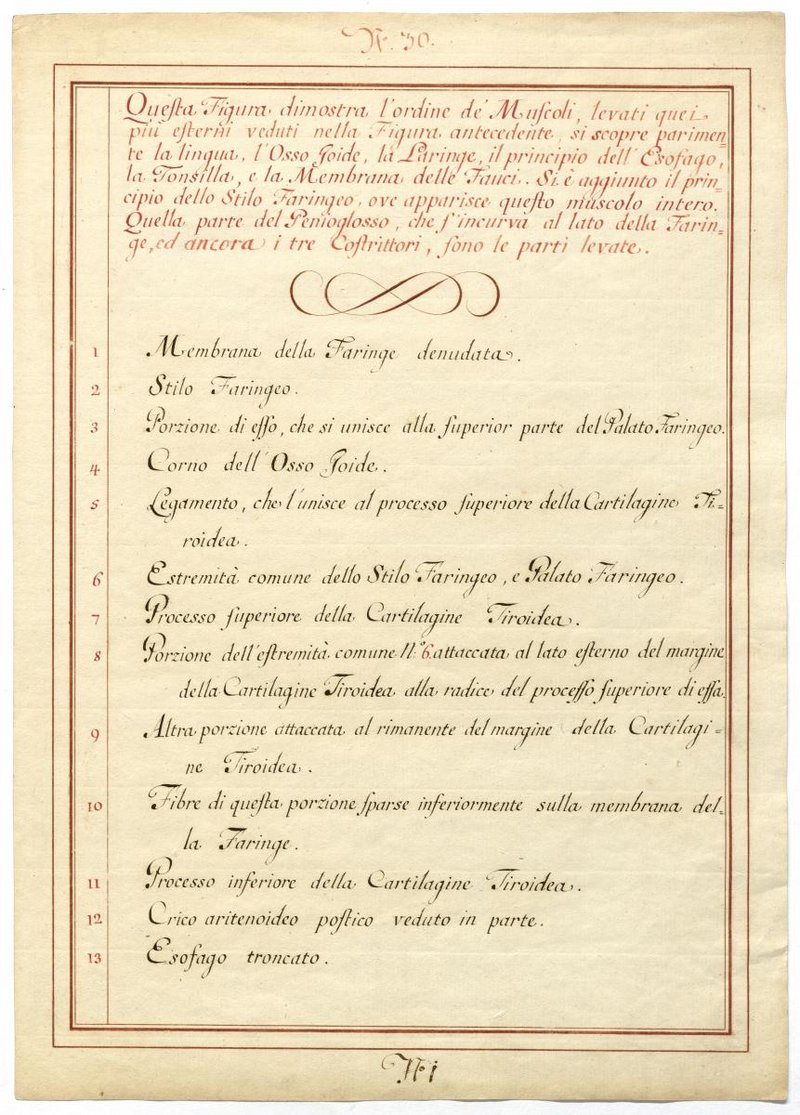 Nº. 30.
Queſta Figura dimostra l'ordine de' Muſcoli, levati quei
più eſterni veduti nella Figura antecedente, si scopre parimen=
te la lingua, l'Osso Joide, la Laringe, il principio dell'Esofago,
la Tonsilla, e la Membrana delle Fauci. Si è aggiunto il prin=
cipio dello Stilo Faringeo, ove apparisce queſto muscolo intero.
Quella parte del Penioglosso, che s'incurva al lato della Farin=
ge, ed ancora i tre Coſtrittori, ſono le parti levate.
1 Membrana della Faringe denudata.
2 Stilo Faringeo.
3 Porzione di eſſo, che si unisce alla ſuperior parte del Palato Faringeo.
4 Corno dell'Osso Joide.
5 Legamento, che l'unisce al processo ſuperiore della Cartilagine Ti=
roidea.
6 Estremità comune dello Stilo Faringeo, e Palato Faringeo.
7 Processo ſuperiore della Cartilagine Tiroidea.
8 Porzione dell'eſtremità comune Nº. 6. attaccata al lato eſterno del margine
della Cartilagine Tiroidea alla radice del proceſſo ſuperiore di eſſa.
9 Altra porzione attaccata al rimanente del margine della Cartilagi=
ne Tiroidea.
10 Fibre di queſta porzione ſparse inferiormente sulla membrana del=
la Faringe.
11 Processo inferiore della Cartilagine Tiroidea.
12 Crico aritenoideo poſtico veduto in parte.
13 Esofago troncato.
Nº 1